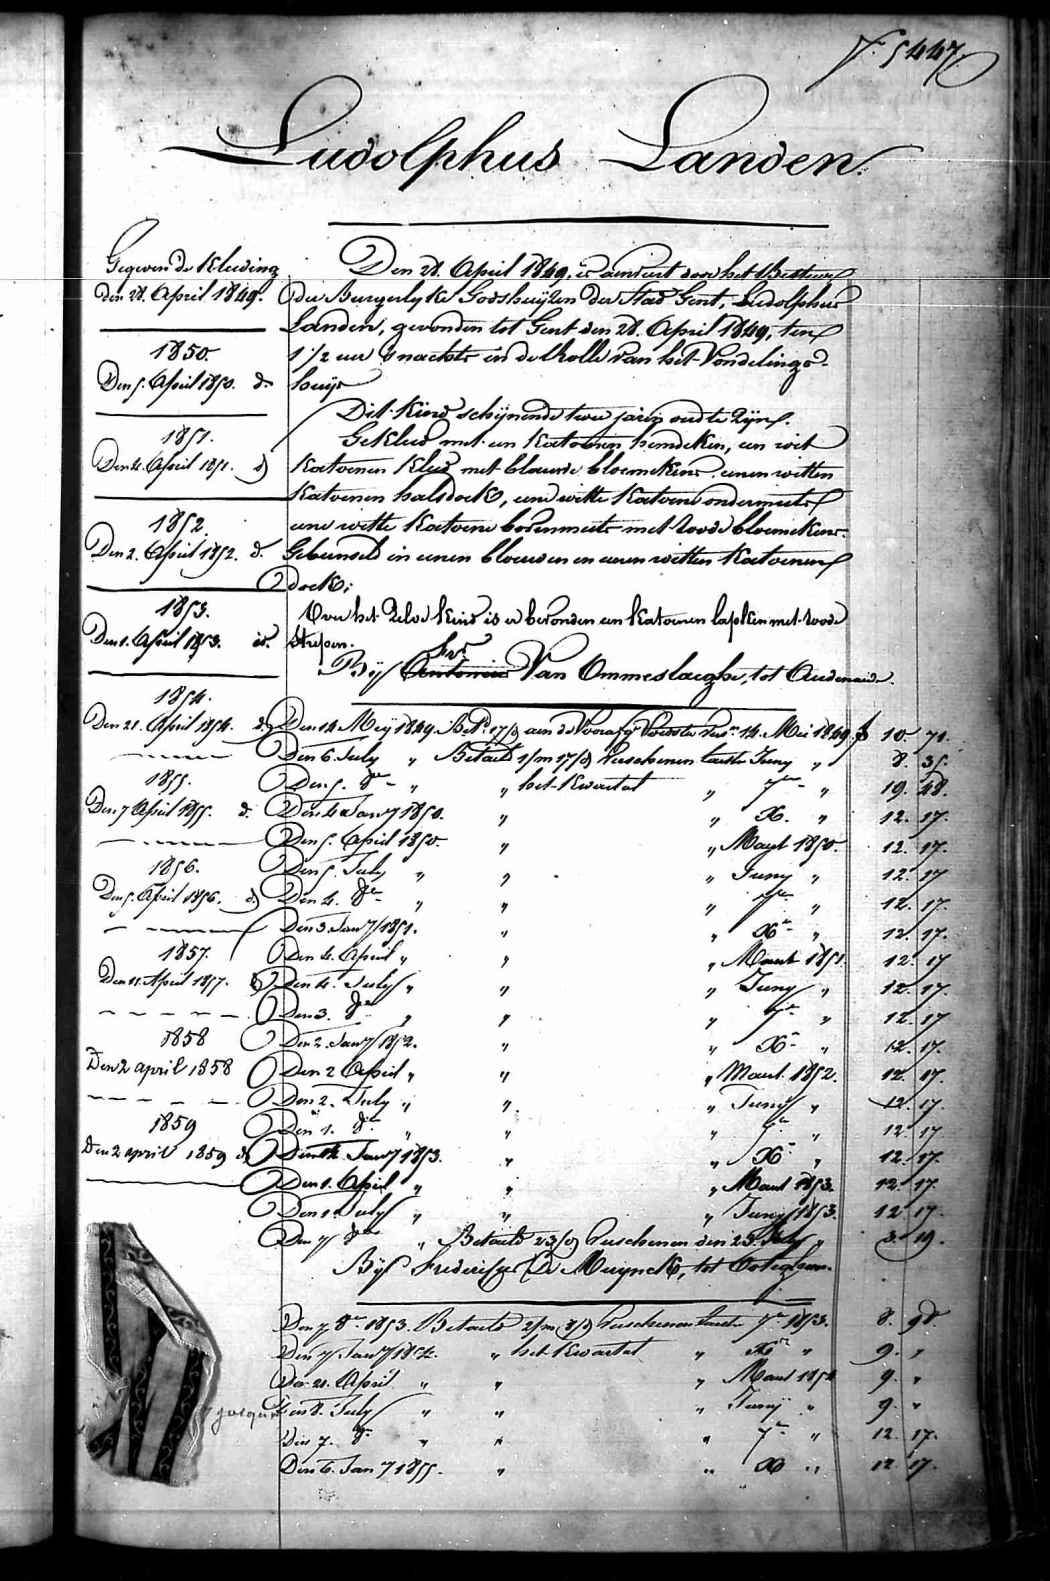 N. 5447
Ludolphus Landen.
Gegeven de Kleeding
den 28. April 1849.
1850.
Den 5. April 1850. do
1851.
Den 4. April 1851. do
1852.
Den 2. April 1852. do
1853.
Den 1. April 1853. id.
1854.
Den 21. April 1854. do
1855.
Den 7 April 1855. do
1856.
Den 5. April 1856. do
1857.
Den 11. April 1857. do
1858
Den 2 april 1858
1859
Den 2 april 1859 do
Den 28. April 1849, is door het Bestuur
der Burgerlyke Godshuyzen der Stad Gent, Ludolphus
Landen, gevonden tot Gent den 28. April 1849, ten
1 1/2 uer 's nachts in de Rolle van het Vondelings-
huys
Dit Kind schynende twee jarig oud te zyn.
Gekleed met een Katoenen hemdeken, een wit
Katoenen Kleed met blauwe bloemekens eenen witten
Katoenen halsdoek, eene witte Katoene ondermuts
eene witte Katoene bovenmuts met roode bloemekens.
Gebunseld in eenen blauwen en eenen witten Katoenen
doek;
Over het zelve kind is er bevonden een Katoenen lapken met roode
strepen.
By Antonius Van Ommeslaeghe, tot Audenaerde.
Den 14 Mey 1849. 14. Mei 1849. 10. 71.
Den 6. July " Betaeld 1/m 17/d verschenen laetste Juny " 8. 35.
Den 5. 8re " " het Kwartael " 7re " 19. 48.
Den 4 Jany 1850. " " X. " 12. 17.
Den 5. April 1850. " " Maert 1850. 12. 17.
Den 5. July " " " Juny " 12. 17
Den 4. 8re " " " 7re " 12. 17.
Den 3. Jany 1851. " " Xre " 12. 17.
Den 4. April " " " Maert 1851. 12. 17
Den 4. July " " " Juny " 12. 17.
Den 3. 8re " " " 7re " 12. 17
Den 2. Jany 1852. " " Xre " 12. 17.
Den 2 April " " " Maert 1852. 12. 17.
Den 2. July " " " Juny " 12. 17
Den 1. 8re " " " 7re " 12. 17
Den 14. Jany 1853. " " Xre " 12. 17.
Den 1. April " " " Maert 1853. 12. 17.
Den 1. July " " " Juny 1853. 12 17.
Den 7 8re " Betaeld 23/d verschenen den 23. July " 3. 19.
By Frederic De Muynck, tot
Den 7 8re 1853. Betaeld 2/m 8/d verschenen laetste 7re 1853. 8. 98
Den 7 Jany 1854. " het Kwartael " Xre " 9. "
Den 21. April " " " Maert 1854 9. "
Den 8. July " " " Juny " 9. "
Den 7. 8re " " " 7re " 12. 17.
Den 6. Jany 1855. " " X " 12 17.